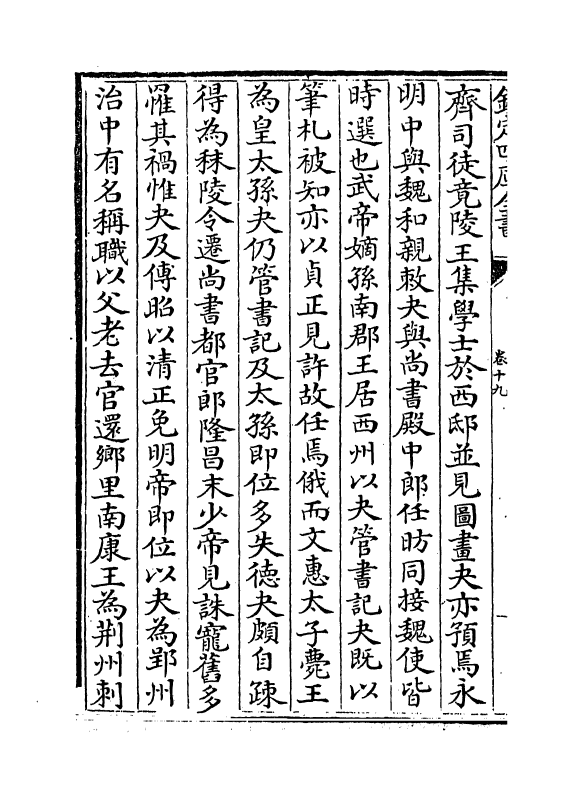 欽定四庫全書
卷十九
齊司徒竟陵王集學士於西邸並見圖畫夬亦預焉永
明中與魏和親敕夬與尚書殿中郎任昉同接魏使皆
時選也武帝嫡孫南郡王居西州以夬管書記夬既以
筆札被知亦以貞正見許故任焉俄而文惠太子薨王
為皇太孫夬仍管書記及太孫即位多失德夬頗自疎
得為秣陵令遷尚書都官郎隆昌末少帝見誅寵舊多
罹其禍惟夬及傅昭以清正免明帝即位以夬為郢州
治中有名稱職以父老去官還鄉里南康王為荆州刺